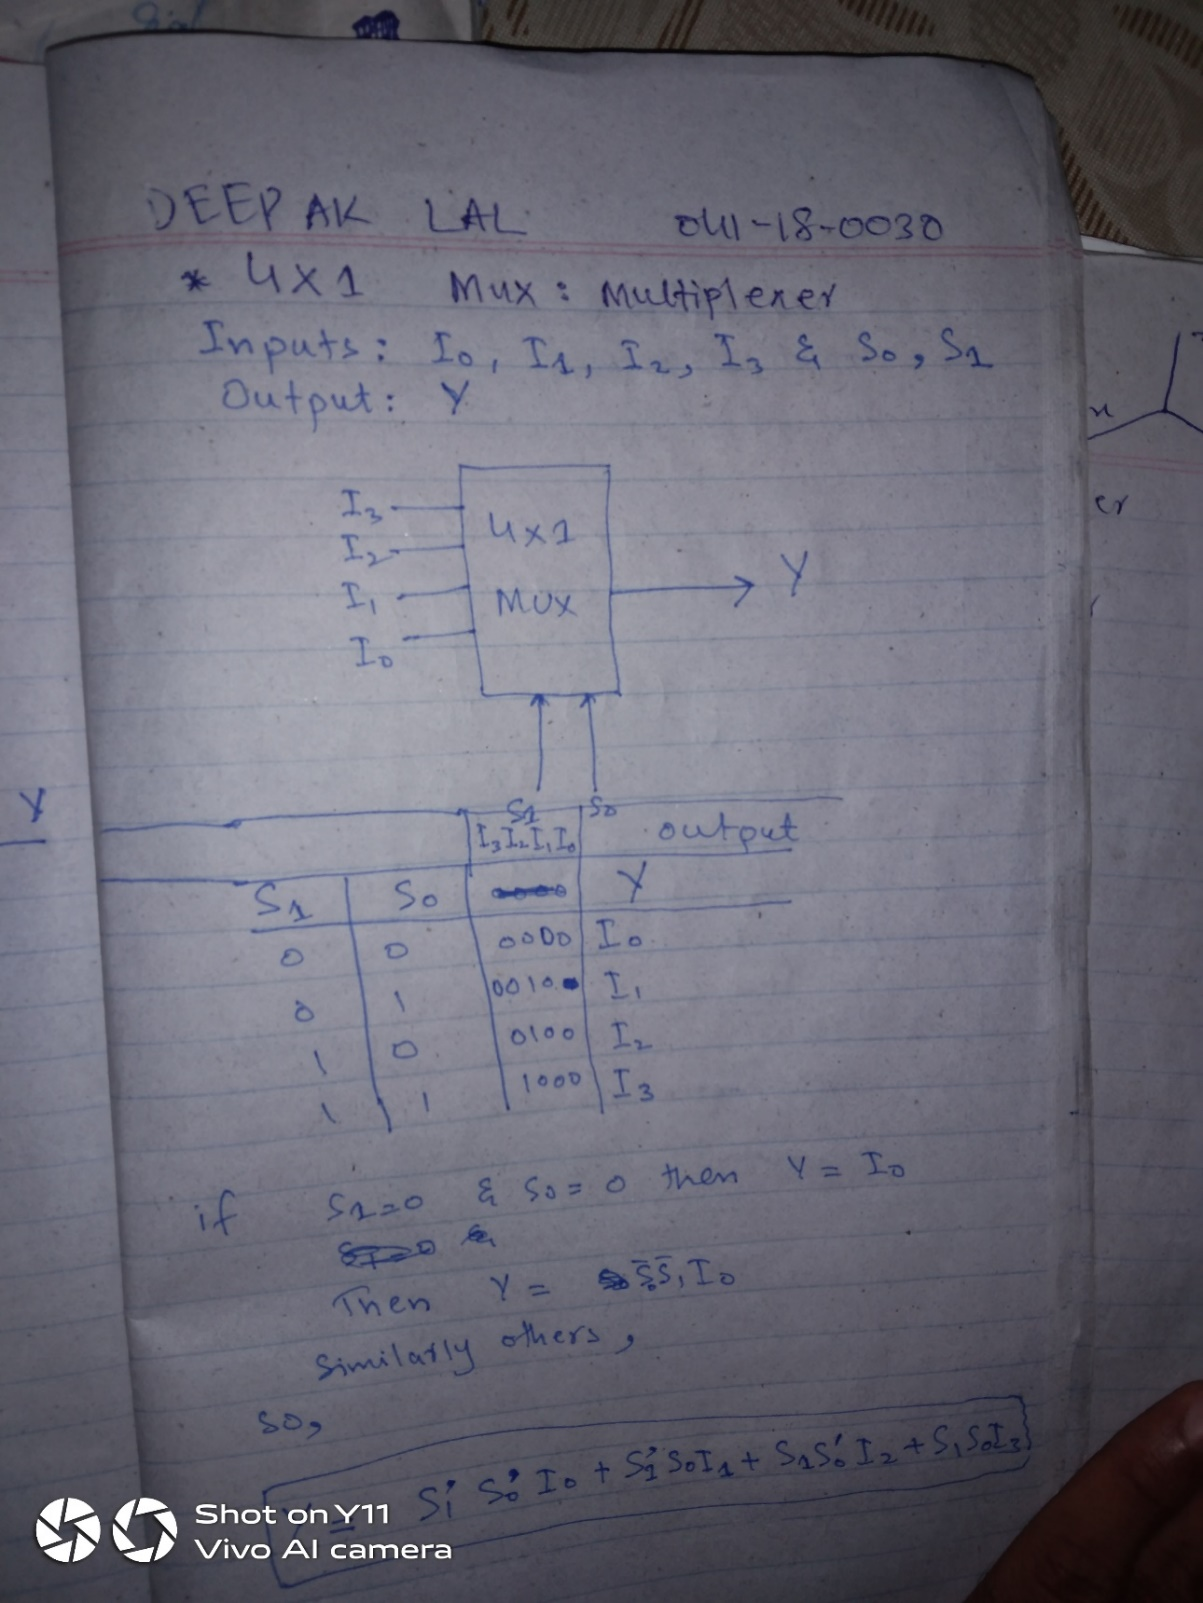 DEEPAK LAL 041-18-0030
* 4x1 Mux: Multiplexer
Inputs: I0, I1, I2, I3 & S0, S1
Output: Y
I3
4x1
I2
I1
MUX
Y
I0
S1 S0
I3 I2 I1 I0 output
S1 S0 Y
0 0 0000 I0
0 1 0010 I1
1 0 0100 I2
1 1 1000 I3
if S1=0 & S0=0 then Y = I0
Then Y = S̄0S̄1I0
Similarly others,
so,
Y = S1' S0' I0 + S1' S0 I1 + S1 S0' I2 + S1 S0 I3
Y
er
Shot on Y11
Vivo AI camera